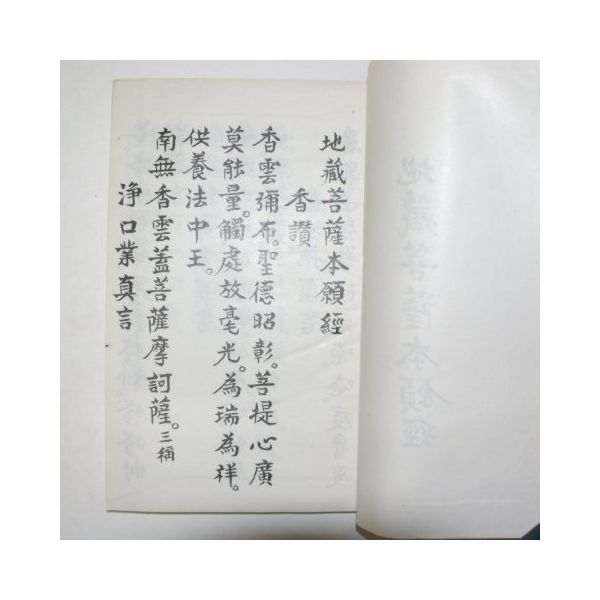 地藏菩薩本願經
香讚
香雲彌布。聖德昭彰。菩提心廣
莫能量。觸處放毫光。為瑞為祥。
供養法中王。
南無香雲蓋菩薩摩訶薩。三稱
淨口業真言
地藏菩薩本願經